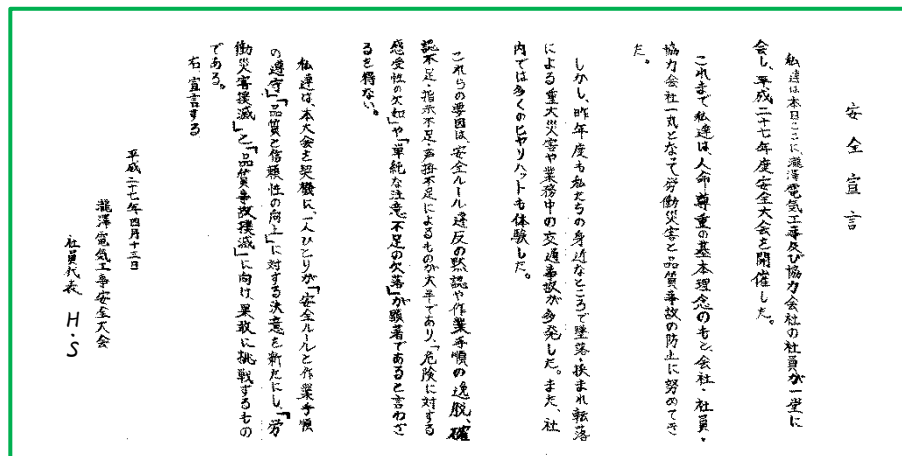 安全宣言
私達は本日ここに、瀧澤電気工事及び協力会社の社員が一堂に
会し、平成二十七年度安全大会を開催した。
これまで私達は、人命尊重の基本理念のもと、会社・社員・
協力会社一丸となって労働災害と品質事故の防止に努めてき
た。
しかし、昨年度も私たちの身近なところで墜落・挟まれ・転落
による重大災害や業務中の交通事故が多発した。また、社
内では多くのヒヤリハットも体験した。
これらの要因は、安全ルール違反の黙認や作業手順の逸脱、確
認不足・指示不足・声掛不足によるものが大半であり、「危険に対する
感受性の欠如」や「単純な注意不足の欠落」が顕著であると言わざ
るを得ない。
私達は、本大会を契機に、一人ひとりが「安全ルールと作業手順
の遵守」「品質と信頼性の向上」に対する決意を新たにし、「労
働災害撲滅」と「品質事故撲滅」に向け果敢に挑戦するもの
である。
右、宣言する
平成二十七年四月十三日
瀧澤電気工事安全大会
社員代表 H・S